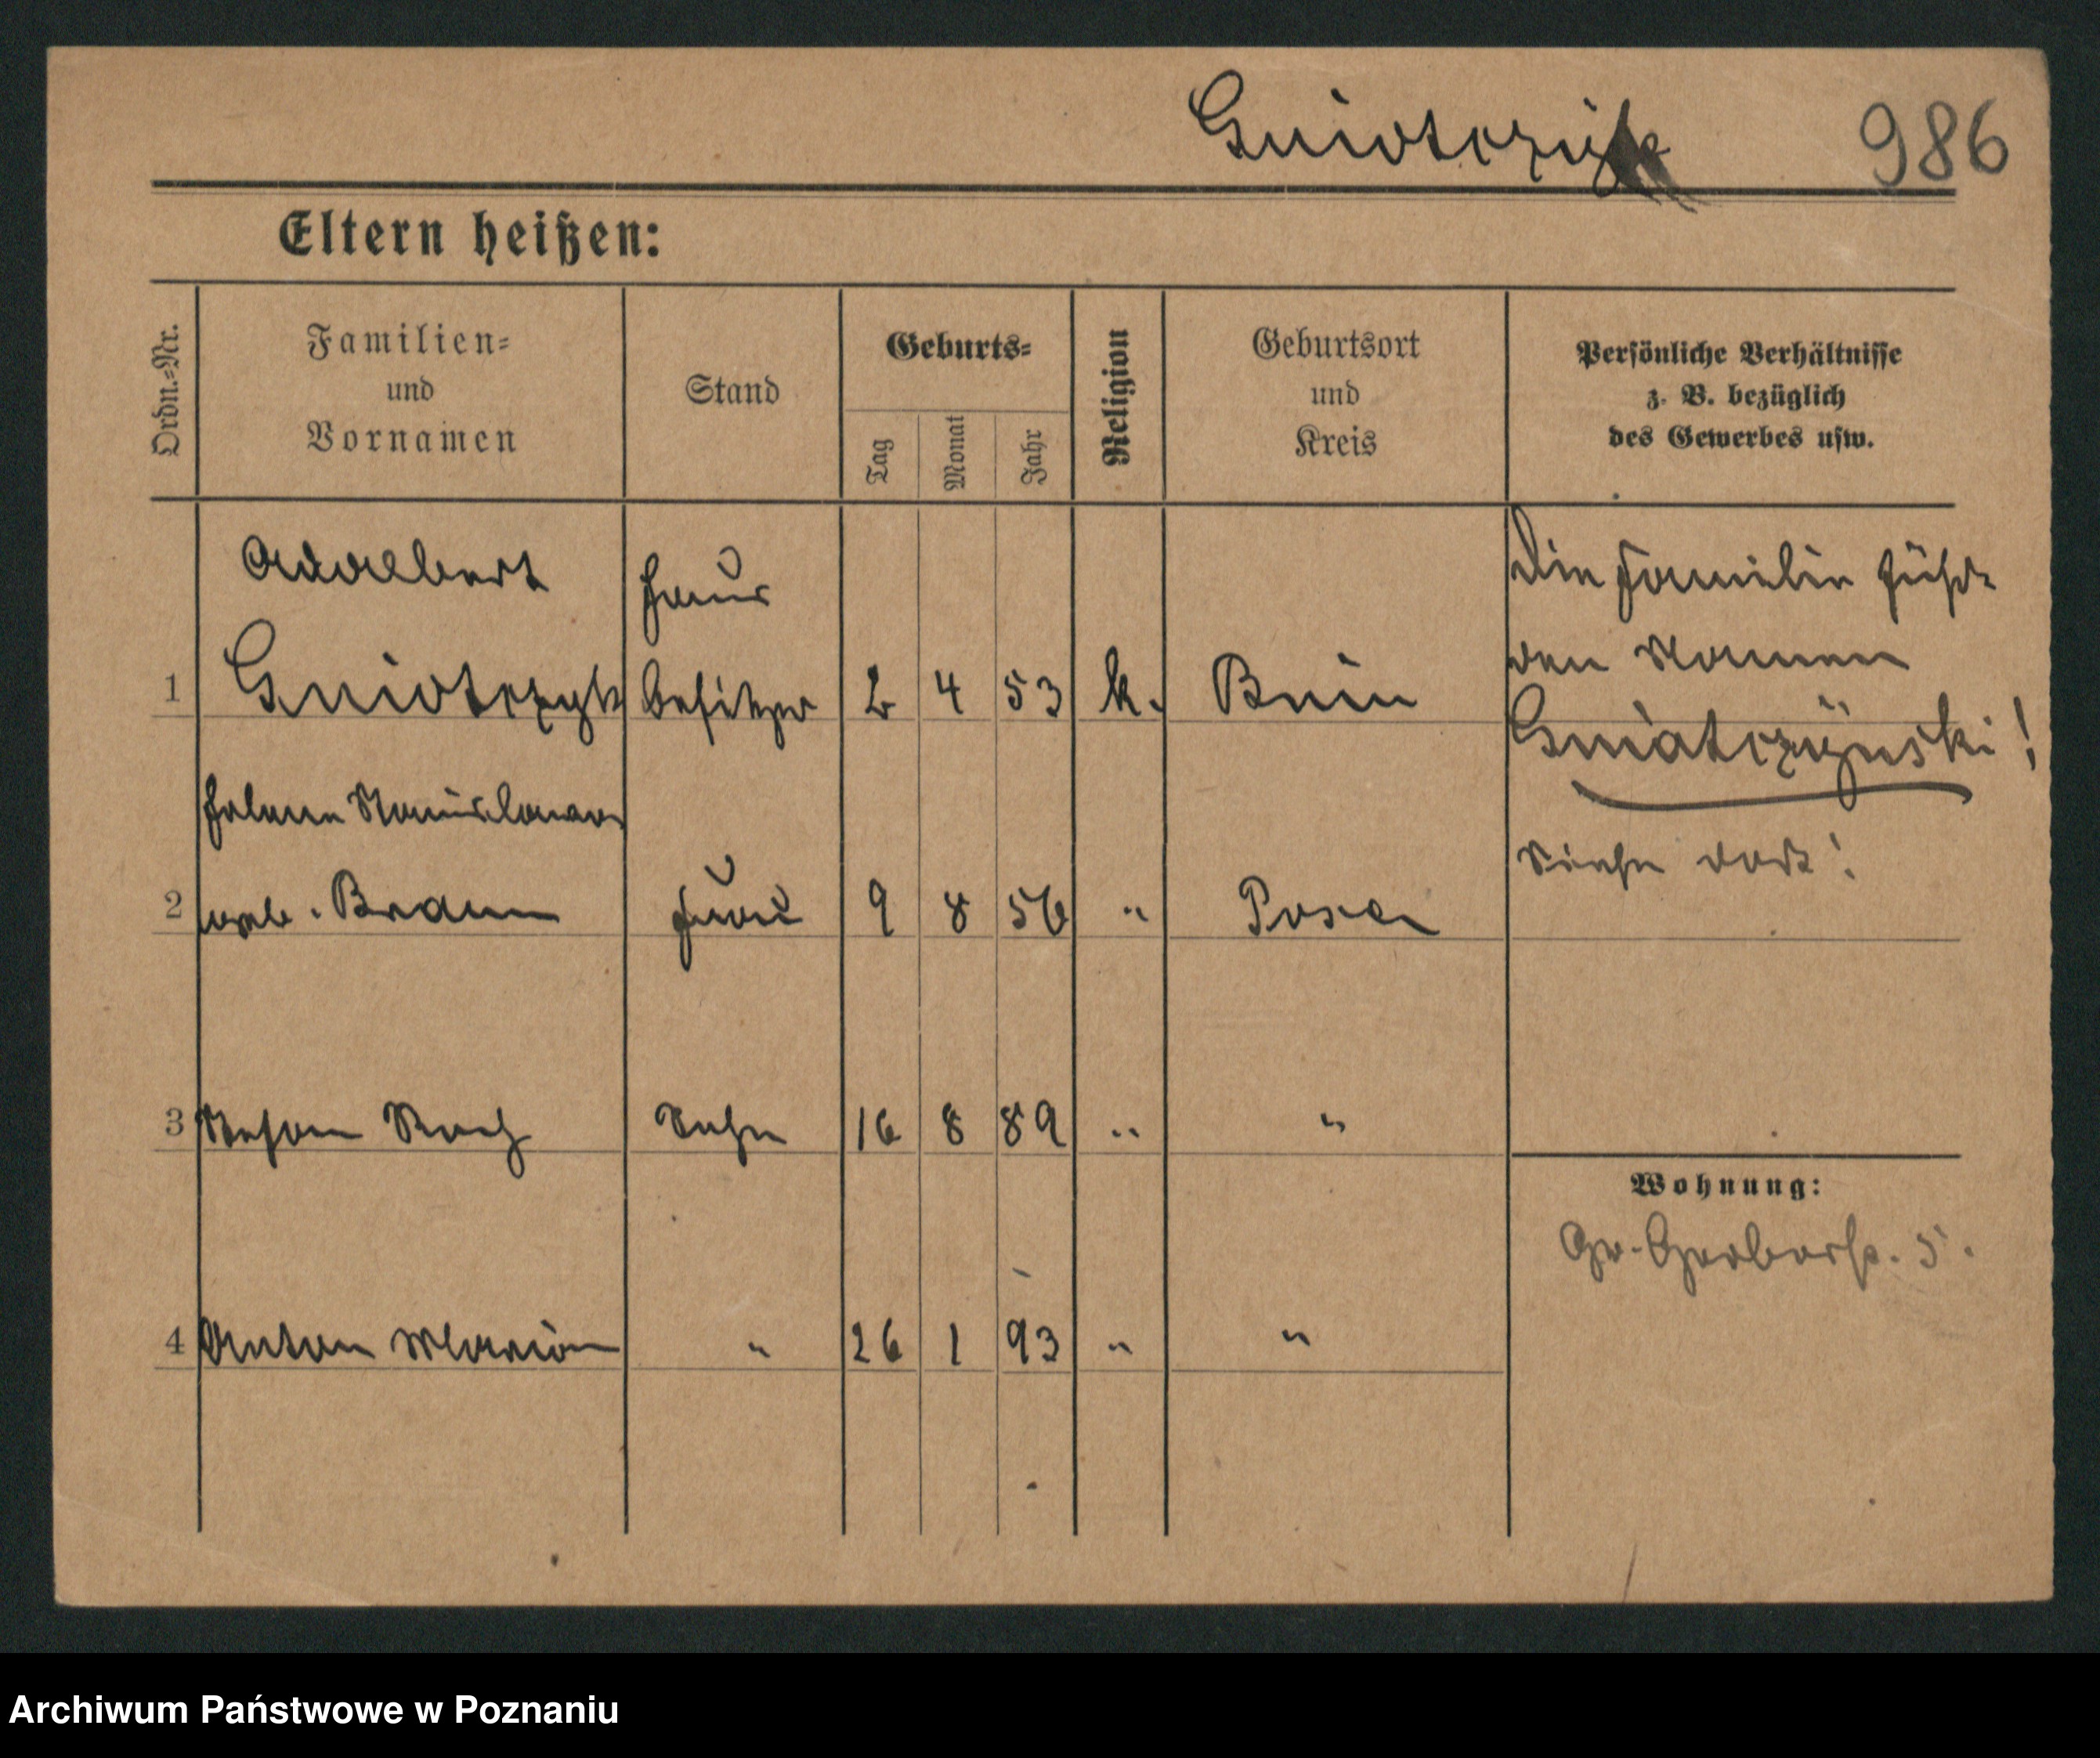 Gniotczyk 986
Eltern heißen:
Ordn.-Nr.
Familien-
und
Vornamen
Stand
Geburts-
Tag
Monat
Jahr
Religion
Geburtsort
und
Kreis
Persönliche Verhältnisse
z. B. bezüglich
des Gewerbes usw.
Adalbert
Gniotczyk
Haus
besitzer
1 2 4 53 k. Bnin
Die Familie führt
den Namen
Gniatczyński!
Siehe dort!
Helene Stanislawa
2 geb. Braun Frau 9 8 56 " Posen
3 Stefan Roch Sohn 16 8 89 " "
4 Anton Marian " 26 1 93 " "
Wohnung:
Gr. Gerberstr. 5.
Archiwum Państwowe w Poznaniu